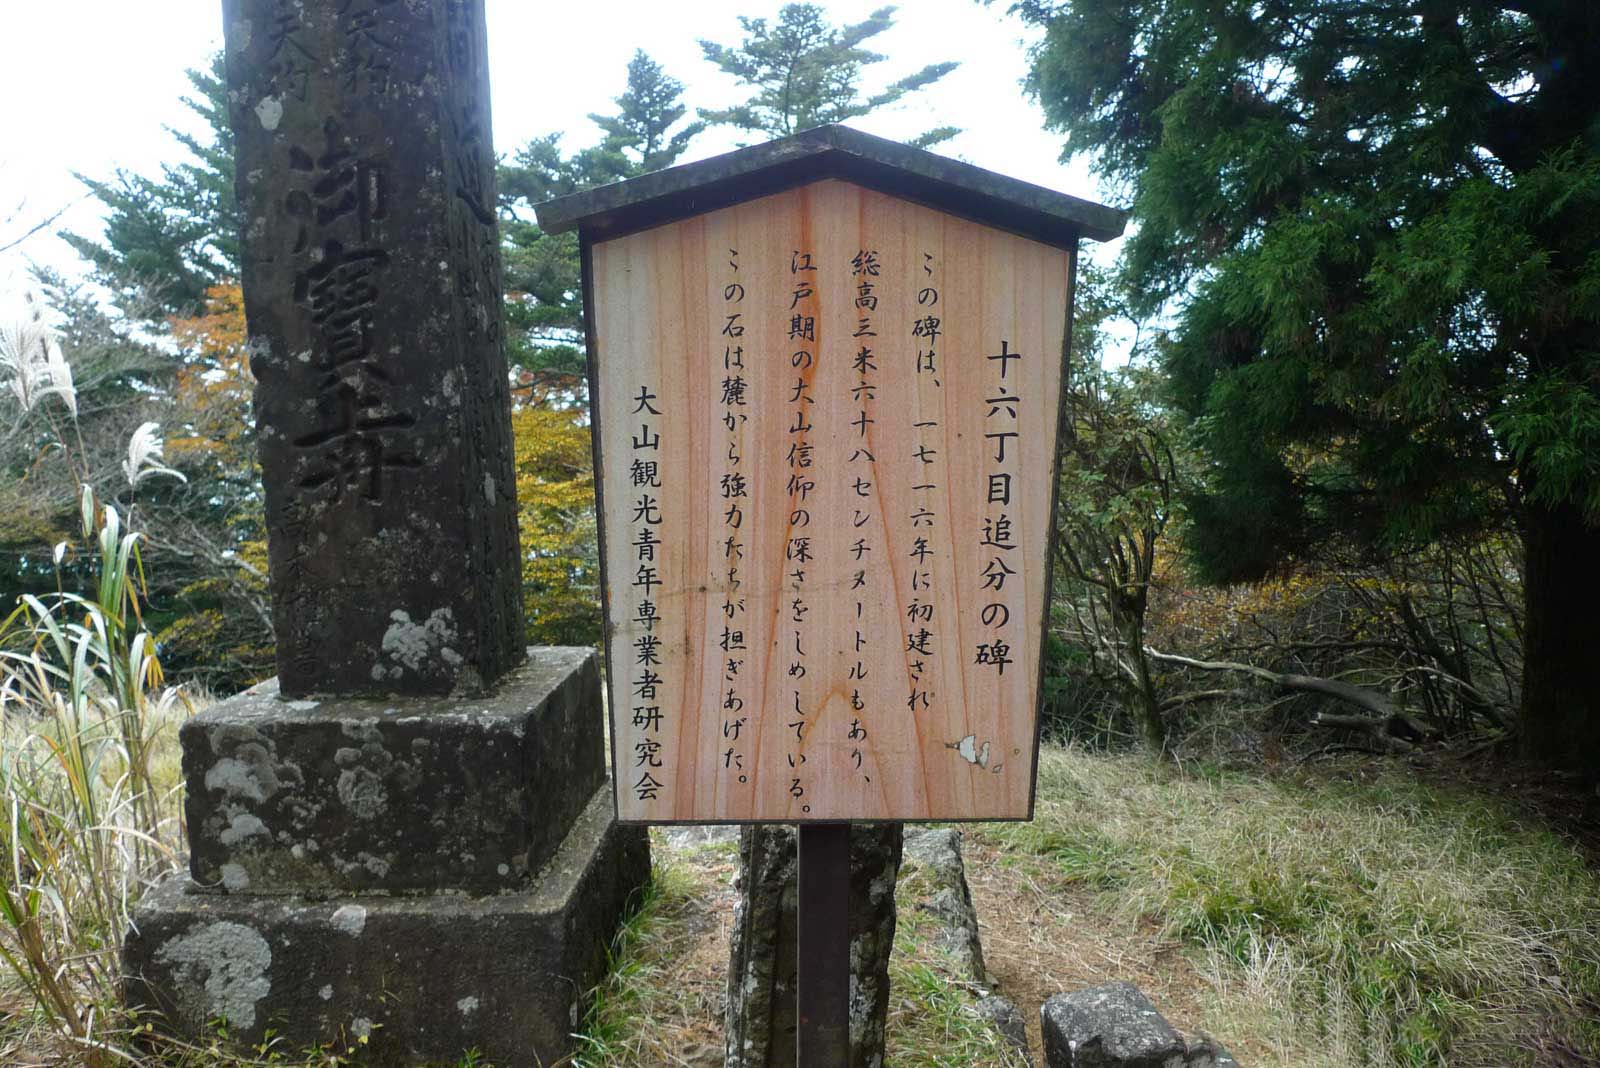 十六丁目追分の碑
この碑は、一七一六年に初建され
総高三米六十八センチメートルもあり、
江戸期の大山信仰の深さをしめしている。
この石は麓から強力たちが担ぎあげた。
大山観光青年専業者研究会
御寶前